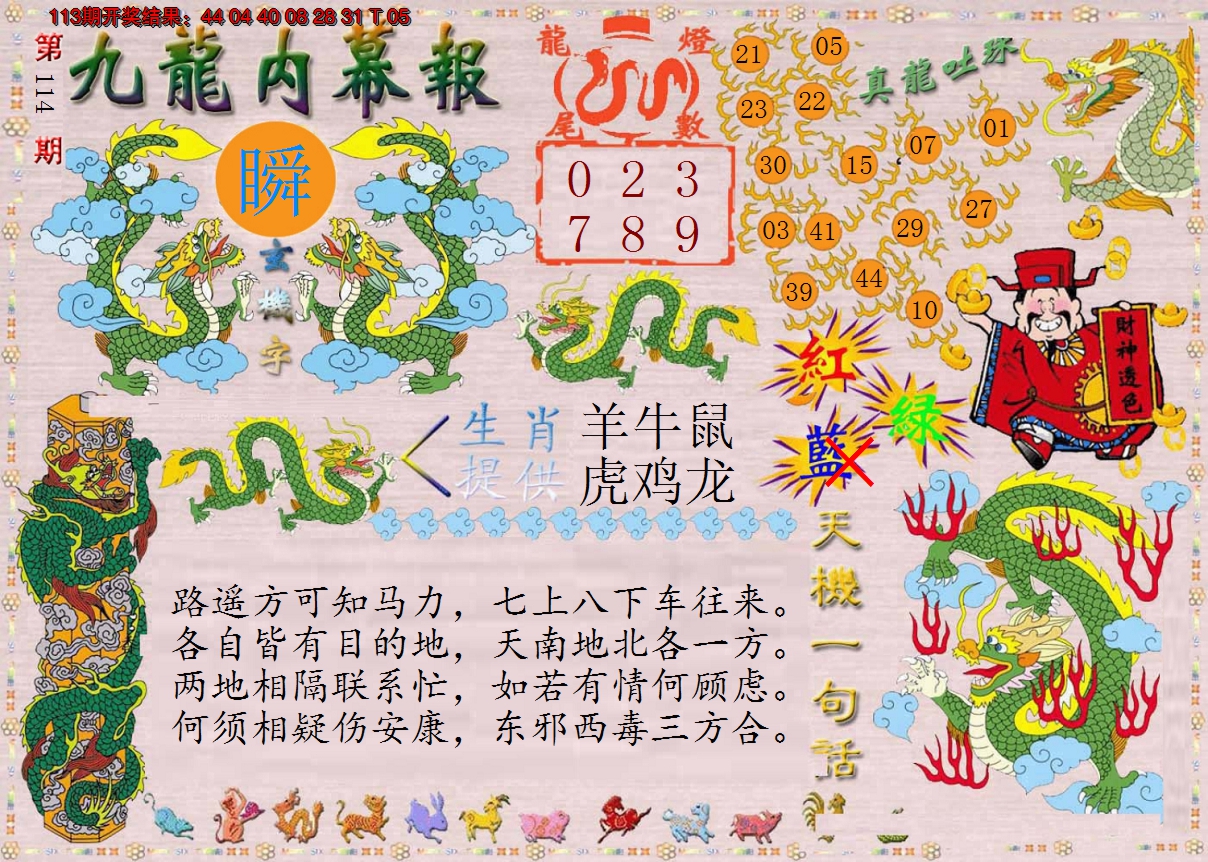 113期开奖结果：44 04 40 08 28 31 T 05
第114期
九龍内幕報
瞬
玄機字
龍燈
尾數
0 2 3
7 8 9
真龍吐珠
21 05
23 22
07 01
30 15
27
03 41 29
39 44
10
紅
綠
藍
財神透色
生肖 羊牛鼠
提供 虎鸡龙
天機一句話
路遥方可知马力，七上八下车往来。
各自皆有目的地，天南地北各一方。
两地相隔联系忙，如若有情何顾虑。
何须相疑伤安康，东邪西毒三方合。